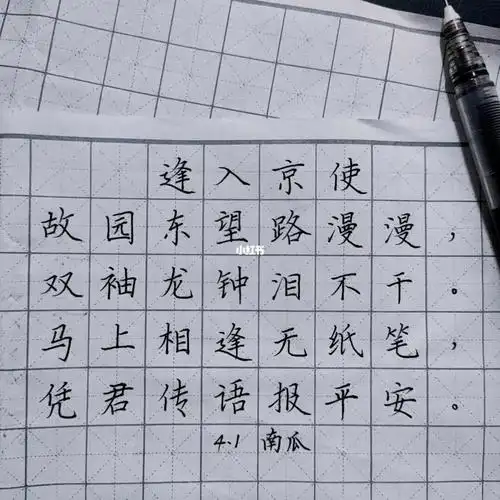 逢入京使
故园东望路漫漫，
双袖龙钟泪不干。
小红书
马上相逢无纸笔，
凭君传语报平安。
4.1 南瓜